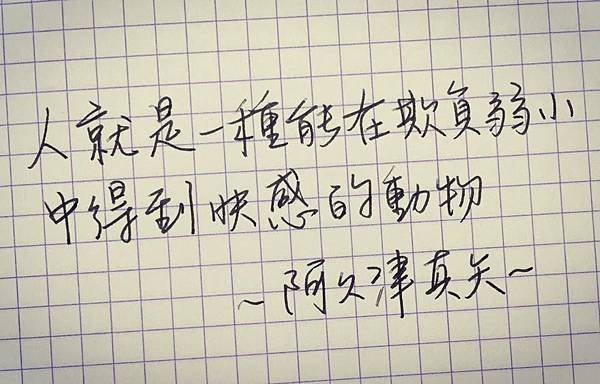 人就是一種能在欺負弱小
中得到快感的動物
~阿久津真矢~